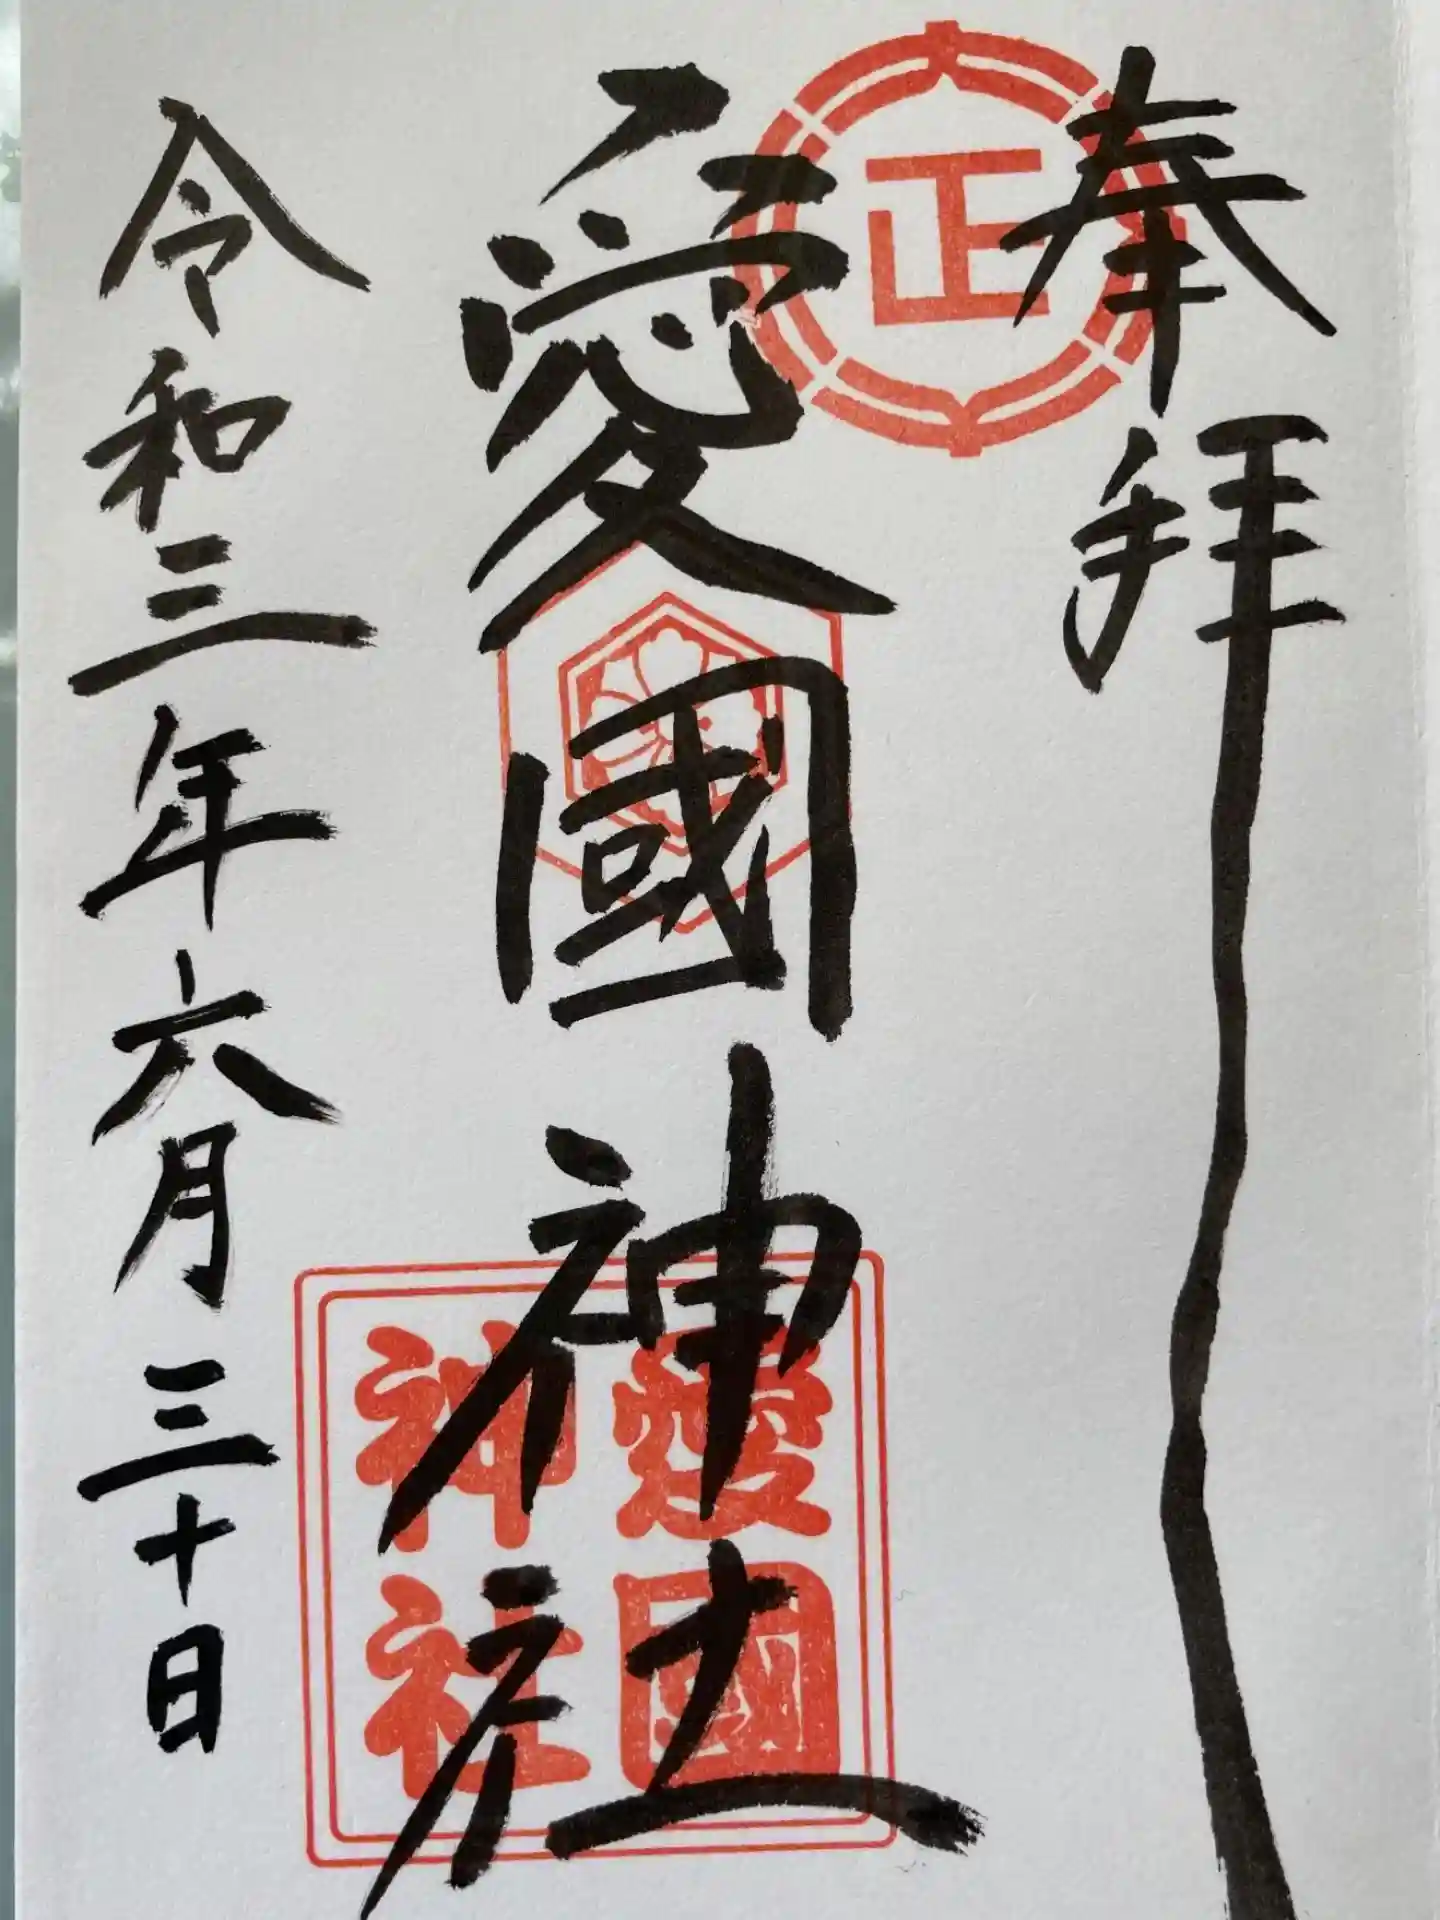 奉拝
正
愛國神社
愛國
神社
令和三年六月三十日